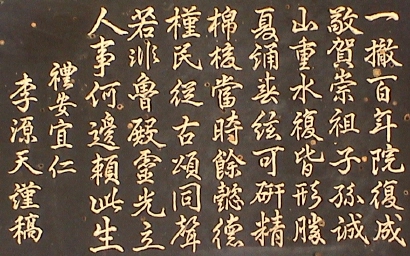 一撤百年院復成
敬賀崇祖子孫誠
山重水復皆形勝
夏誦春絃可研精
棉梭當時餘懿德
槿民從古頌同聲
若非魯殿靈光立
人事何邊賴此生
禮安宜仁
李源天謹稿